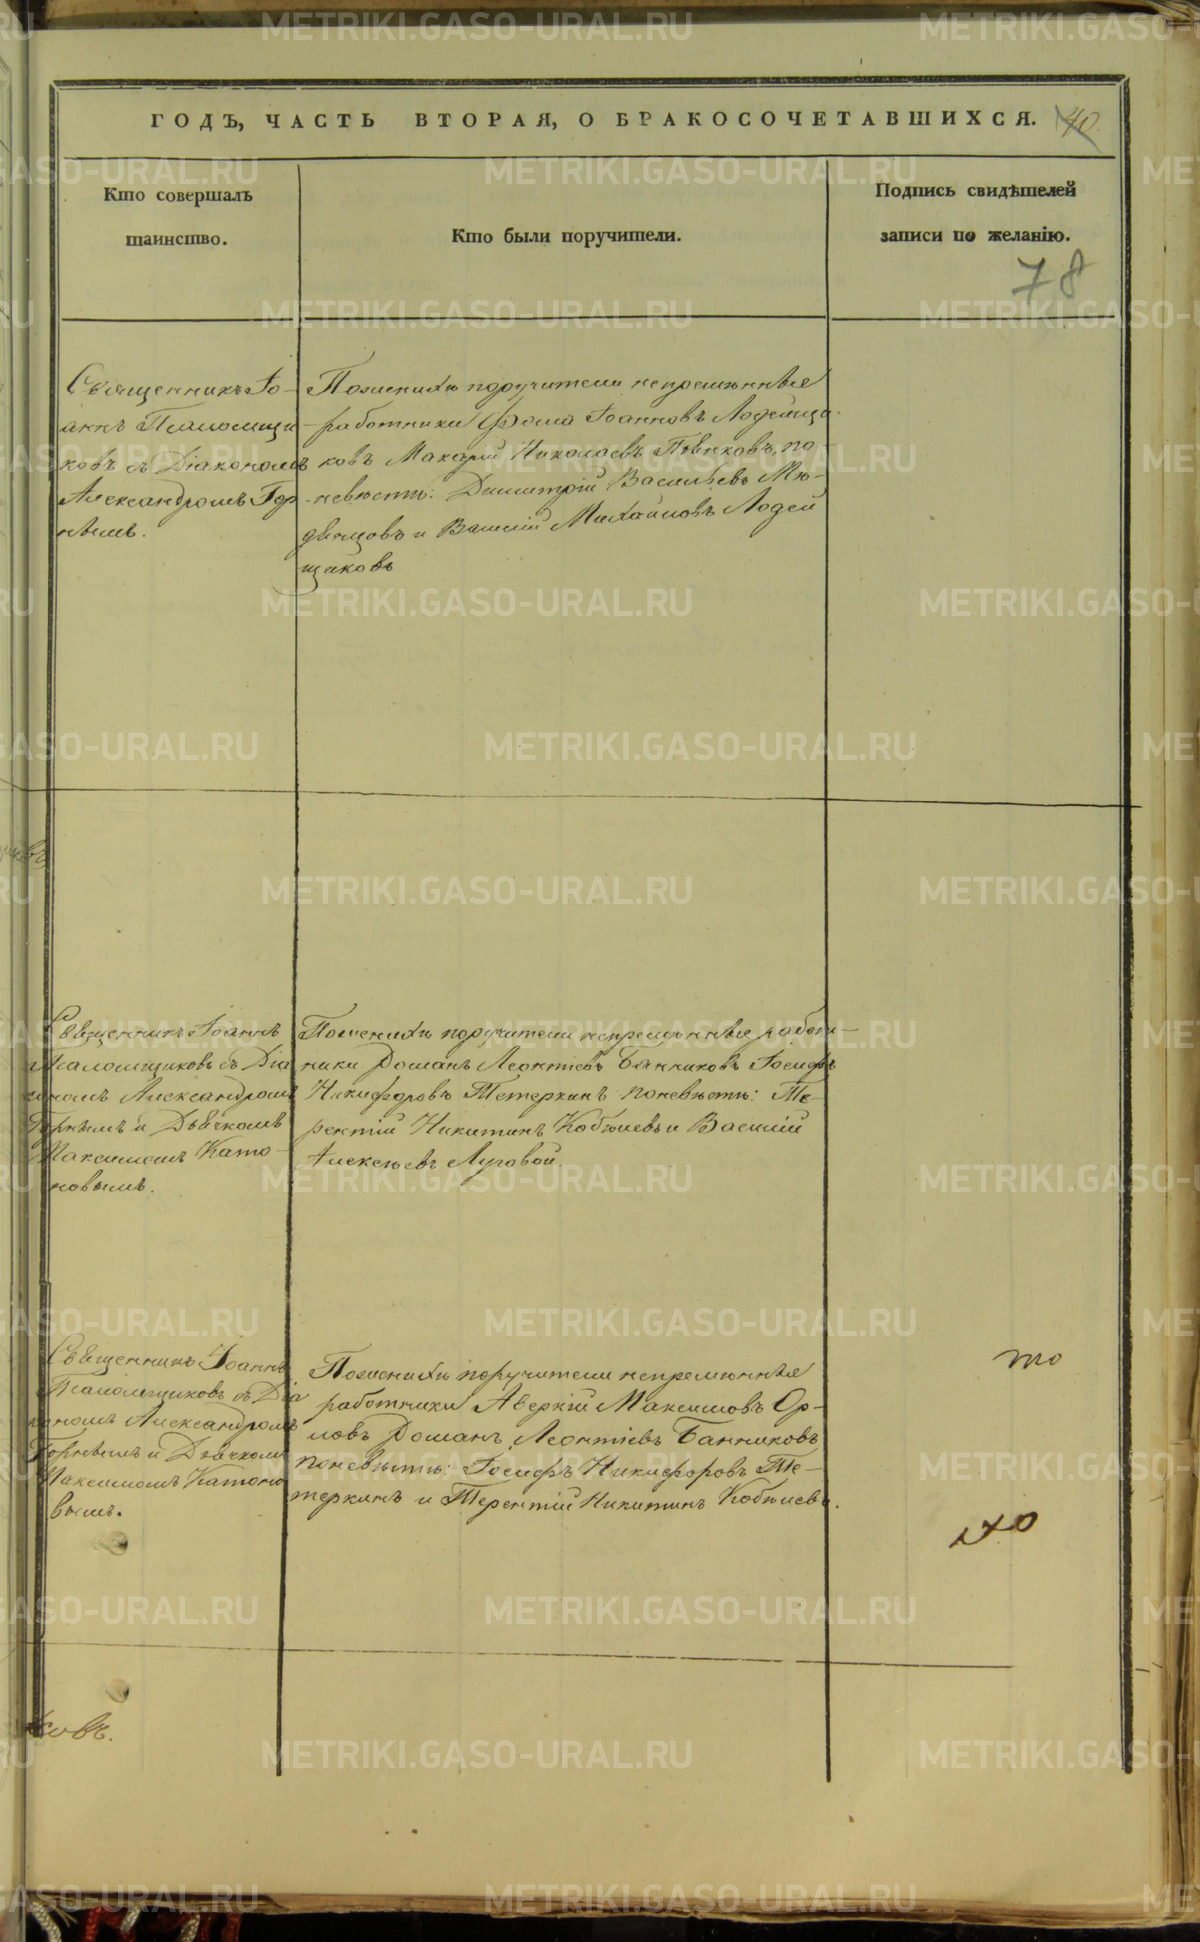 ГОДЪ, ЧАСТЬ ВТОРАЯ, О БРАКОСОЧЕТАВШИХСЯ. 40.
Кто совершалъ
таинство.
Кто были поручители.
Подпись свидѣтелей
записи по желанію.
78
Священникъ Іо-
аннъ Псаломщи
ковъ съ Діакономъ
Александромъ Гор
нымъ.
По женихѣ поручители непремѣнные
работники Фома Іоанновъ Лодейщи-
ковъ Макарій Николаевъ Пьянковъ, по
невѣстѣ: Димитрій Васильевъ Мѣ-
дѣнцовъ и Василій Михайловъ Лодей
щиковъ
Священникъ Іоаннъ
Псаломщиковъ съ Діа
кономъ Александромъ
Горнымъ и Дьячкомъ
Максимомъ Като-
новымъ.
По женихѣ поручители непремѣнные работ-
ники Романъ Леонтіевъ Банниковъ Іосифъ
Никифоровъ Тетеркинъ по невѣстѣ: Те-
рентій Никитинъ Кобелевъ и Василій
Алексѣевъ Луговой.
Священникъ Іоаннъ
Псаломщиковъ съ Діа
кономъ Александромъ
Горнымъ и Дьячкомъ
Максимомъ Катоно
вымъ.
По женихѣ поручители непремѣнные
работники Аверкій Максимовъ Ор-
ловъ Романъ Леонтіевъ Банниковъ
по невѣстѣ: Іосифъ Никифоровъ Те-
теркинъ и Терентій Никитинъ Кобелевъ.
то
ковъ.
METRIKI.GASO-URAL.RU